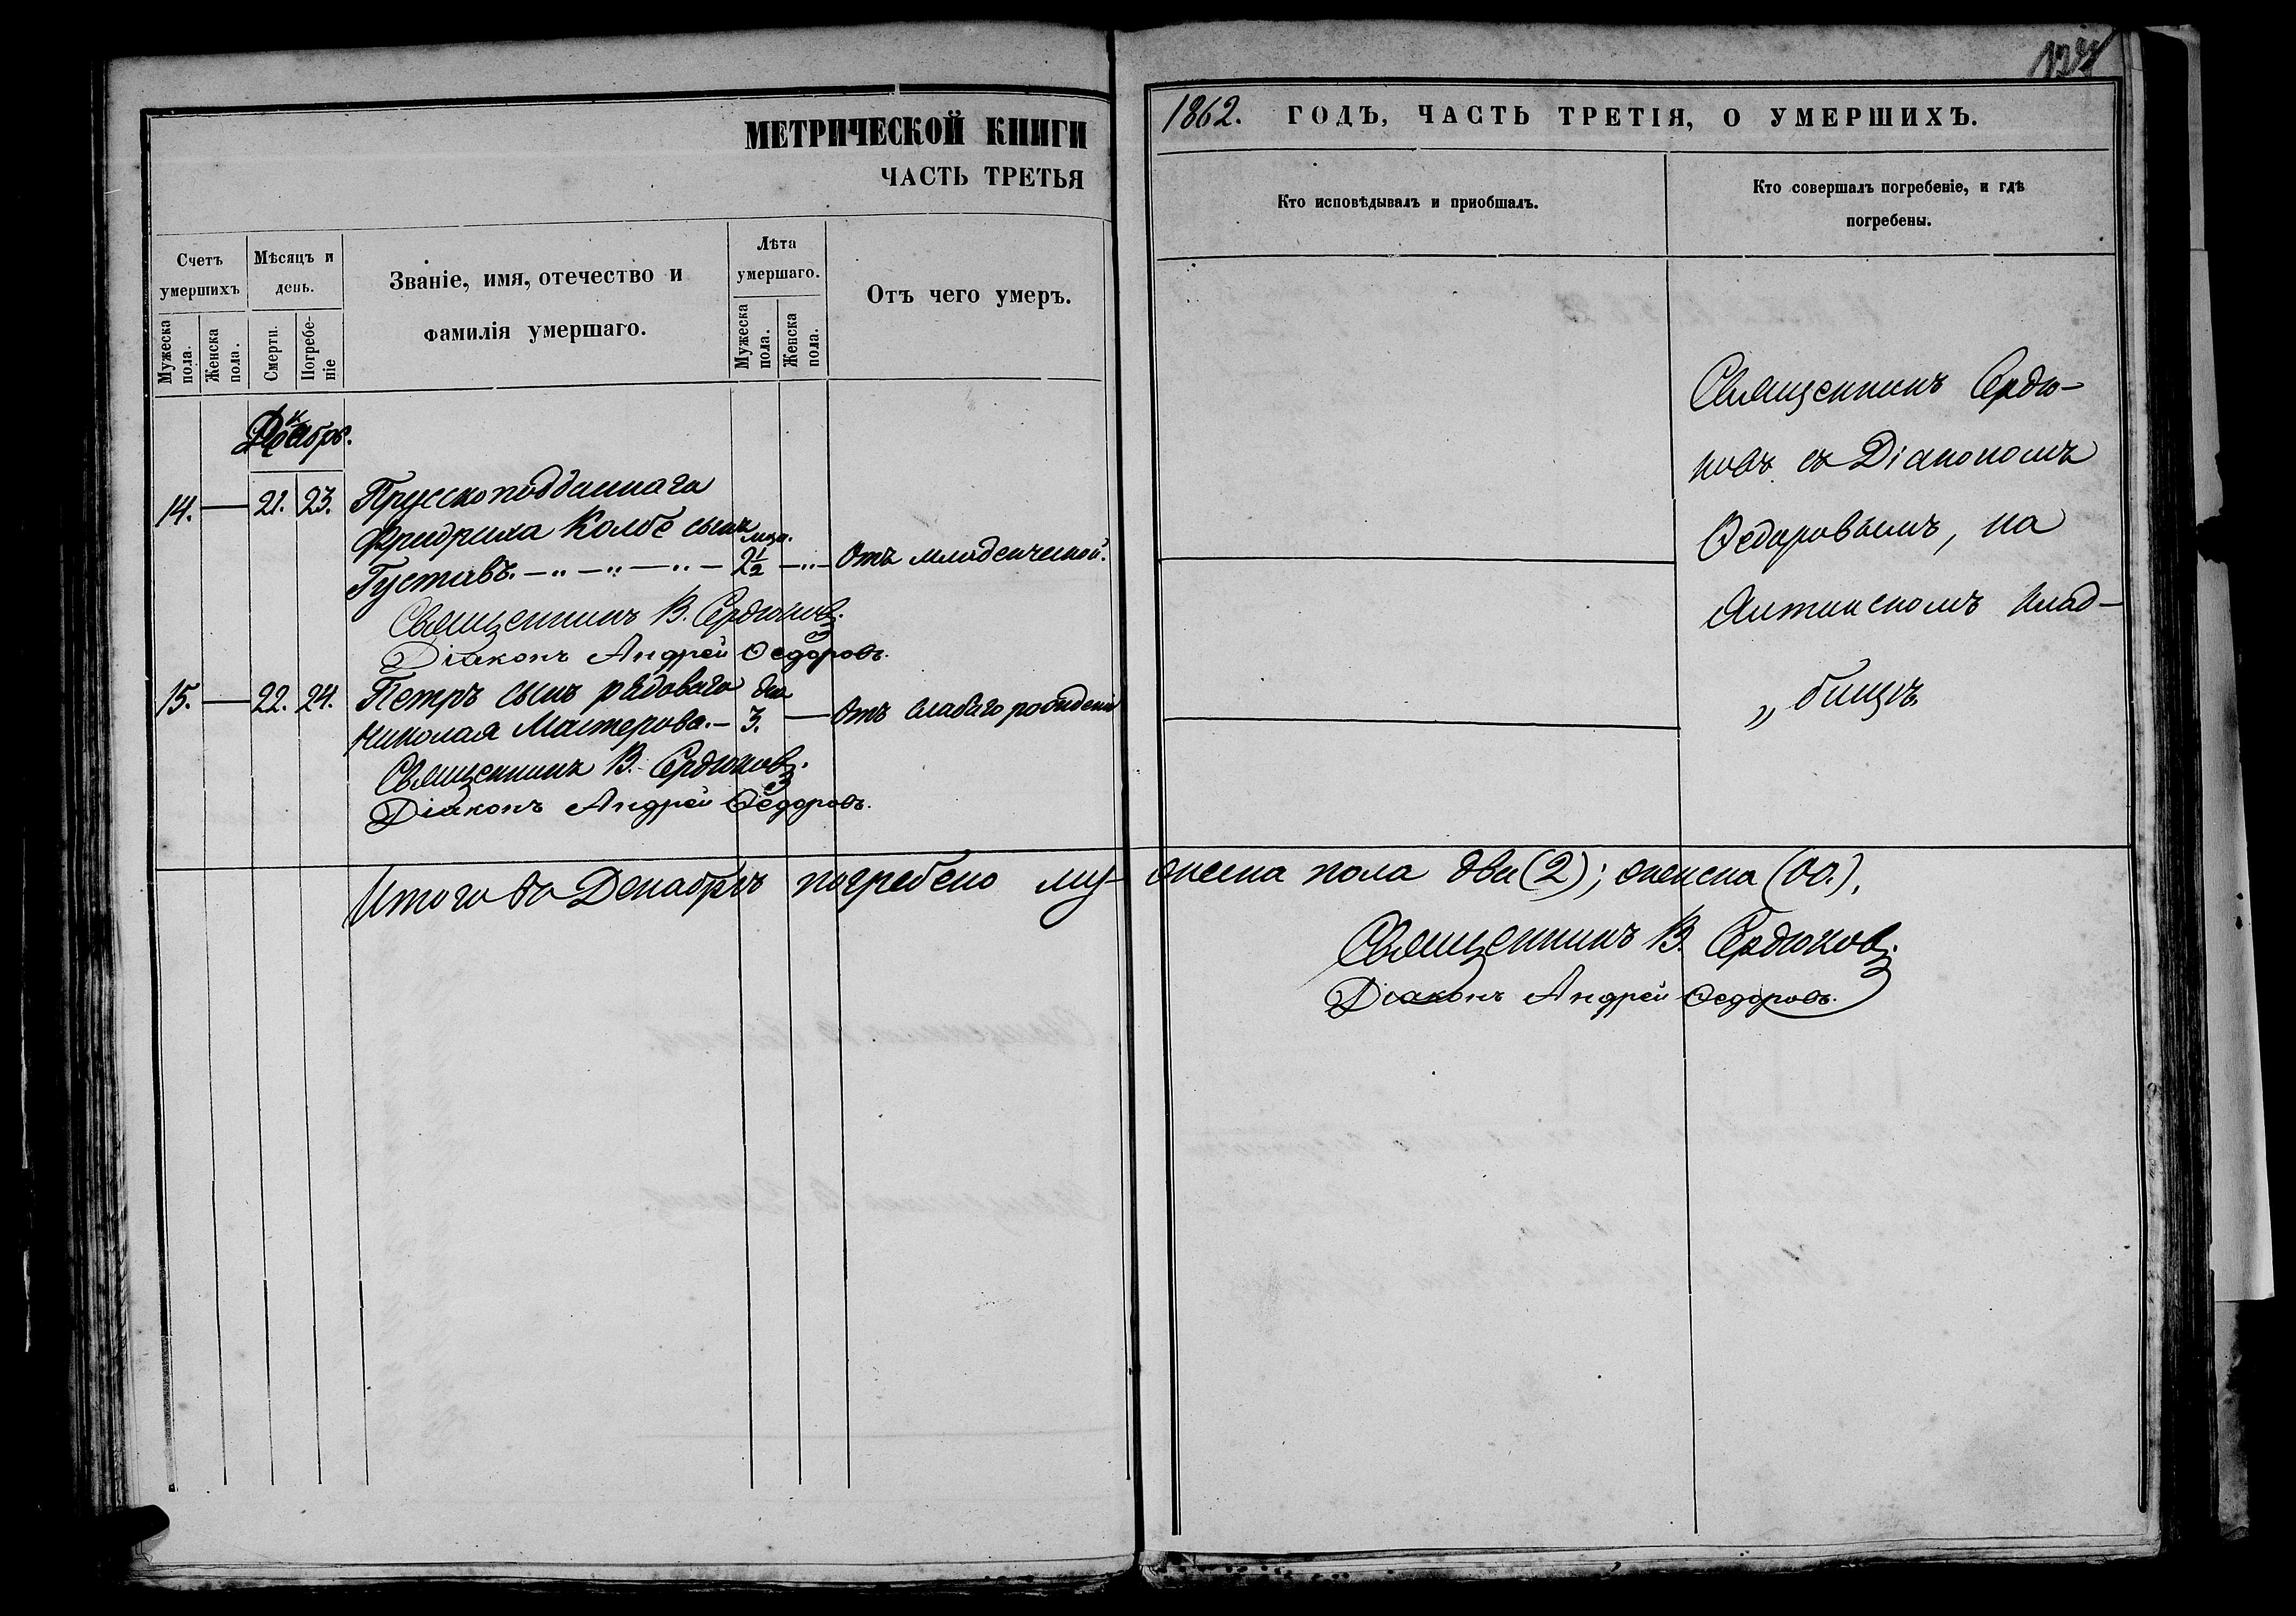 МЕТРИЧЕСКОЙ КНИГИ
ЧАСТЬ ТРЕТЬЯ
Счетъ умершихъ
Мужеска пола.
Женска пола.
Мѣсяцъ и день.
Смерти.
Погребе-ніе
Званіе, имя, отечество и
фамилія умершаго.
Лѣта умершаго.
Мужеска пола.
Женска пола.
Отъ чего умеръ.
Декабрь.
14. — 21. 23. Прусскоподданнаго
Фридриха Колбе сынъ мца.
Густавъ. — „ — „ — „ — 2½ — „ — Отъ младенческой.
Священникъ В. Сердюковъ.
Діаконъ Андрей Ѳедоровъ.
15. — 22. 24. Петръ сынъ рядоваго дня
Николая Мастерова. — 3. — Отъ слабаго рожденія
Священникъ В. Сердюковъ.
Діаконъ Андрей Ѳедоровъ.
Итого въ Декабрѣ погребено му-
1862. ГОДЪ, ЧАСТЬ ТРЕТІЯ, О УМЕРШИХЪ.
Кто исповѣдывалъ и пріобщалъ.
Кто совершалъ погребеніе, и гдѣ
погребены.
Священникъ Сердю-
ковъ съ Діакономъ
Ѳедоровымъ, на
Ялтинскомъ клад-
„ бищѣ.
жеска пола два (2); женска (00.).
Священникъ В. Сердюковъ.
Діаконъ Андрей Ѳедоровъ.